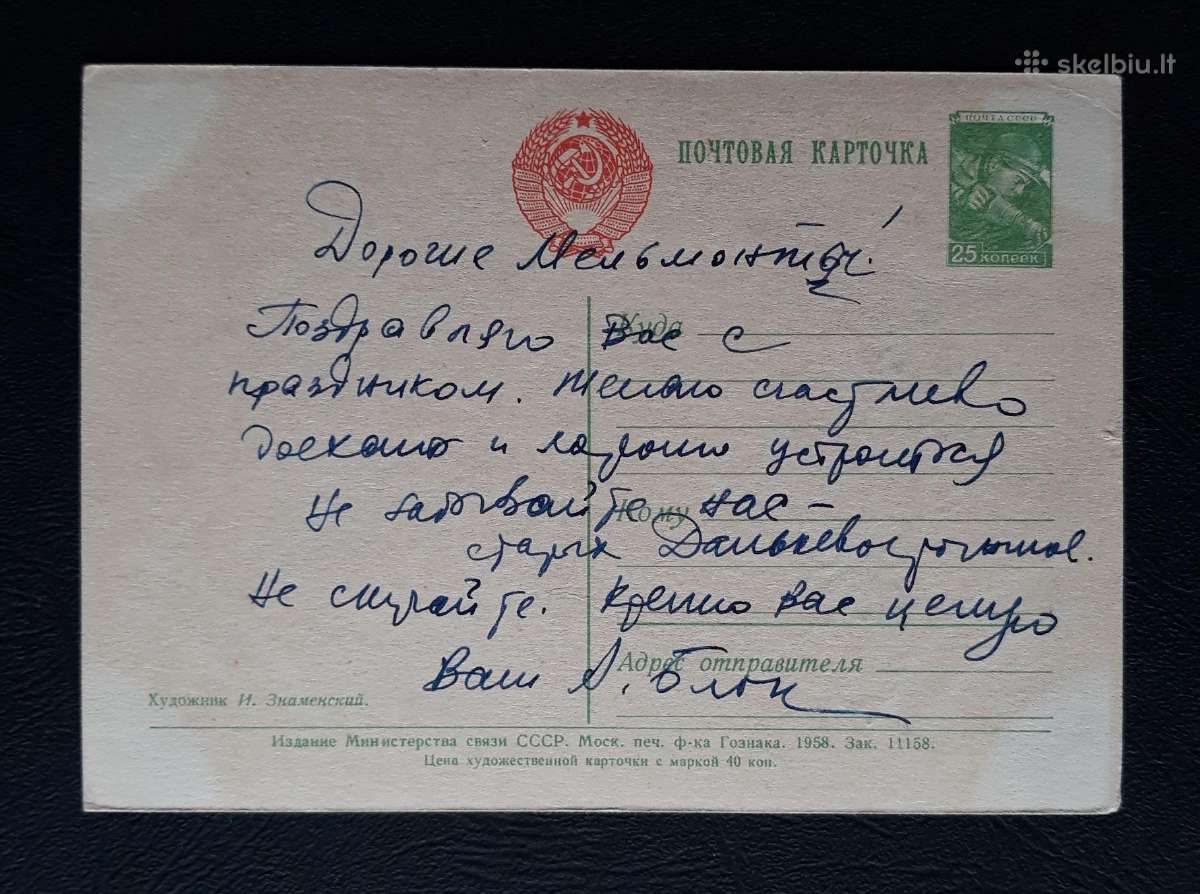 skelbiu.lt
ПОЧТА СССР
ПОЧТОВАЯ КАРТОЧКА
25 КОПЕЕК
Дорогие Мельмонты!
Куда
Поздравляю Вас с
праздником. Желаю счастливо
доехать и хорошо устроиться
Кому
Не забывайте нас –
старых Дальневосточников.
Не скучайте. Крепко вас целую
Адрес отправителя
Ваш А. Блок
Художник И. Знаменский.
Издание Министерства связи СССР. Моск. печ. ф-ка Гознака. 1958. Зак. 11158.
Цена художественной карточки с маркой 40 коп.